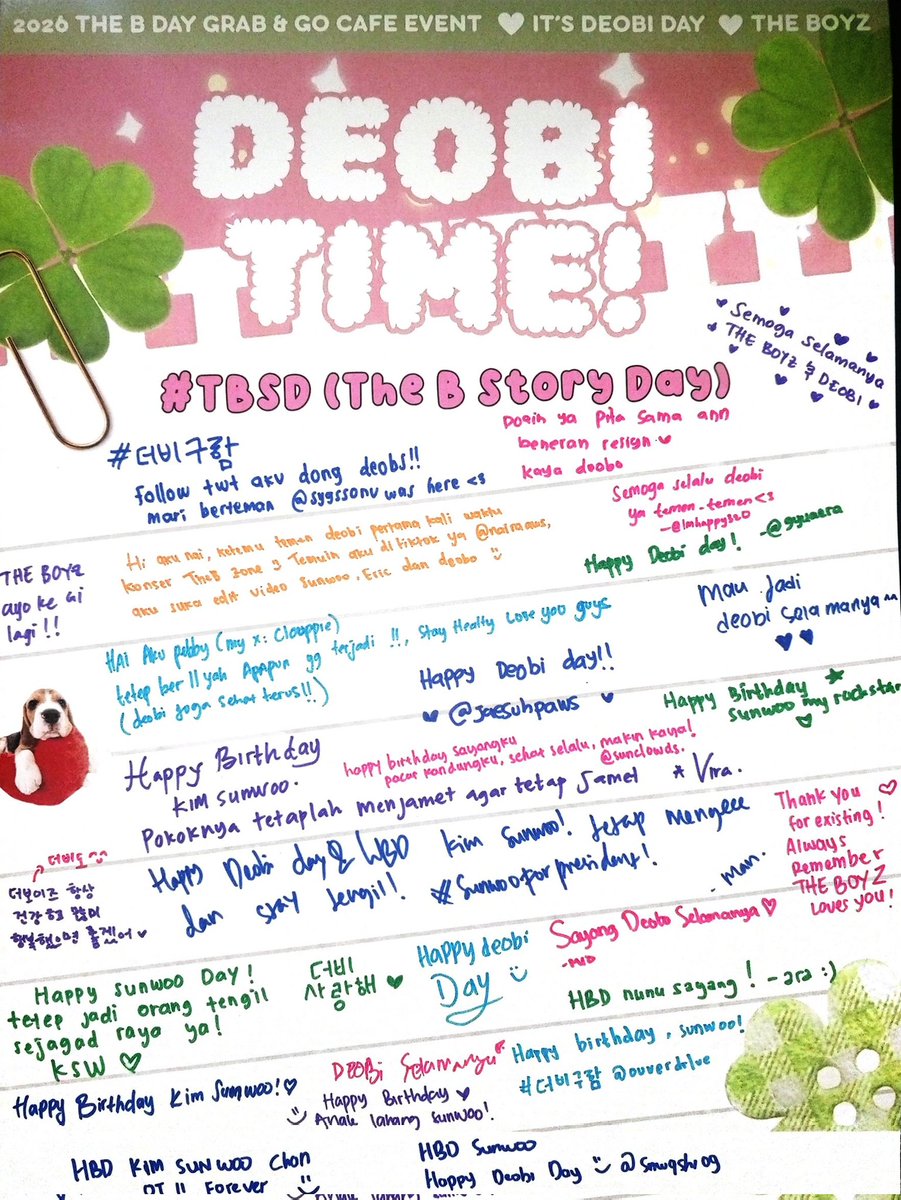 2026 THE B DAY GRAB & GO CAFE EVENT ♥ IT'S DEOBI DAY ♥ THE BOYZ
DEOBI
TIME!
#TBSD (The B Story Day)
Semoga selamanya
THE BOYZ & DEOBI
#더비구함
follow twt aku dong deobs!!
mari berteman @sygssonu was here <3
Doain ya Pita sama ann
beneran resign
kaya deobo
Semoga selalu deobi
ya temen-temen <3
-@lmhappy320
Happy Deobi day!
THE BOYZ
ayo ke GI
lagi!!
Hi aku nai, ketemu temen deobi pertama kali waktu
konser TheB Zone 3 Temuin aku di tiktok ya
aku suka edit video Sunwoo, Eric dan deobo
Mau jadi
deobi selamanya ^^
HAI Aku pebby (my x: Clouppie)
tetep ber 11 yah Apapun yg terjadi !!, Stay Healty Love you guys
(deobi juga sehat terus!!)
Happy Deobi day!!
♥ @jaesuhpaws ♥
Happy Birthday
Sunwoo my rockstar
Happy Birthday
KIM SUNWOO.
happy birthday sayangku
pacar kandungku, sehat selalu, makin kaya!
@sunclowds.
Pokoknya tetaplah menjamet agar tetap Jamet * Vira.
Thank you
for existing!
Always
Remember
THE BOYZ
Loves you!
더비도 ^^
더보이즈 항상
건강하고 많이
행복했으면 좋겠어 ♥
Happy Deobi day & HBD Kim Sunwoo! Tetap mengece
dan stay tengil! #Sunwooforpresident!
- man.
Happy sunwoo Day!
tetep jadi orang tengil
sejagad raya ya!
KSW ♡
더비
사랑해 ♥
Happy deobi
Day
Sayang Deobo Selamanya ♡
HBD nunu sayang! - ara :)
Happy Birthday Kim Sunwoo! ♡
DEOBI Selamanya
Happy Birthday ♥
Anak lanang sunwoo!.
Happy birthday, sunwoo!
#더비구함 @ouverdrive
HBD KIM SUNWOO Chon
OT 11 Forever
HBD Sunwoo
Happy Deobi Day